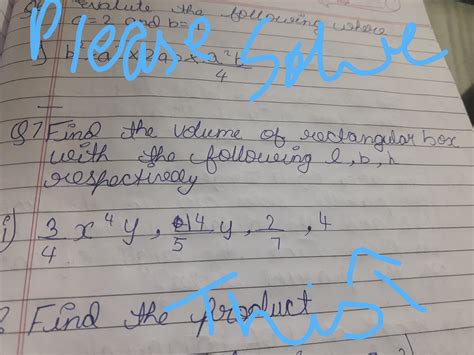 evaluate the following when
a=2 and b=1
Please Solve
a²b
4
Q7 Find the volume of rectangular box
with the following l, b, h
respectively
i) 3/4 x⁴y, 14/5 y, 2/7, 4
This
Find the product